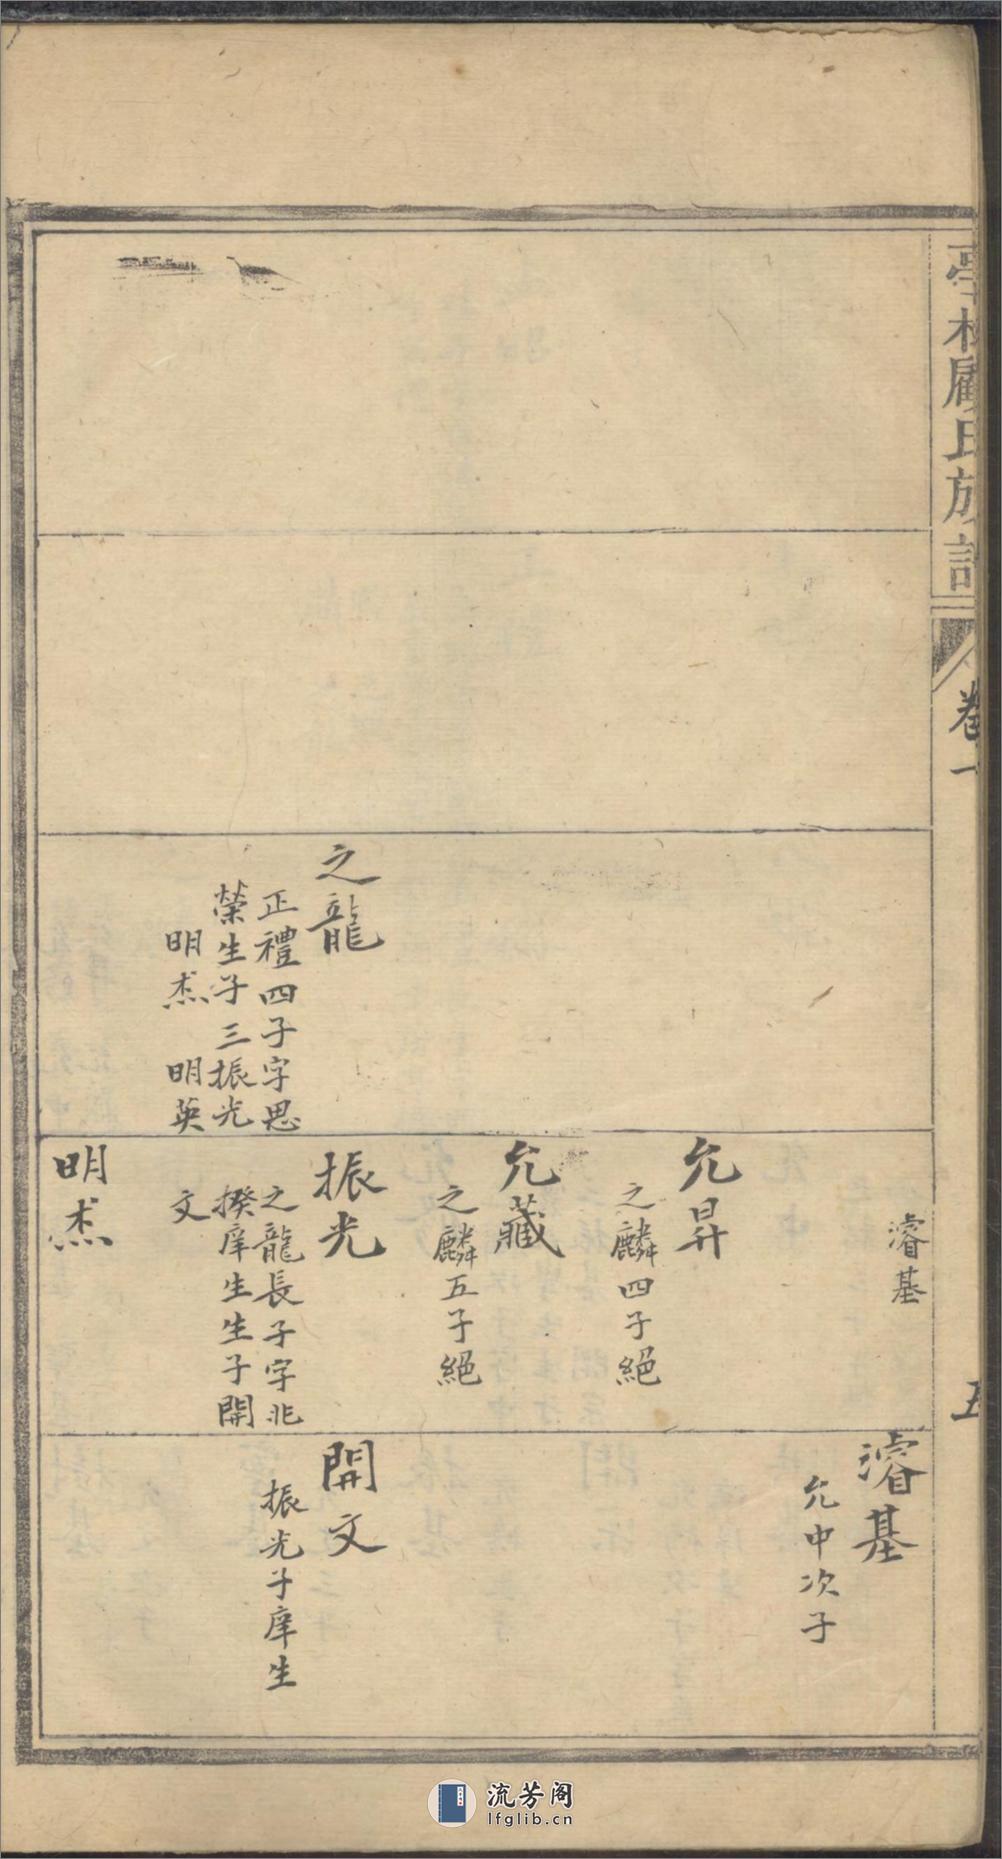 亭林顧氏族譜
卷一
五
之龍
正禮四子字思
榮生子三振光
明杰 明英
濬基
允昇
之麟四子絕
允藏
之麟五子絕
振光
之龍長子字非
揆庠生生子開
文
明杰
濬基
允中次子
開文
振光子庠生
流芳阁
lfglib.cn